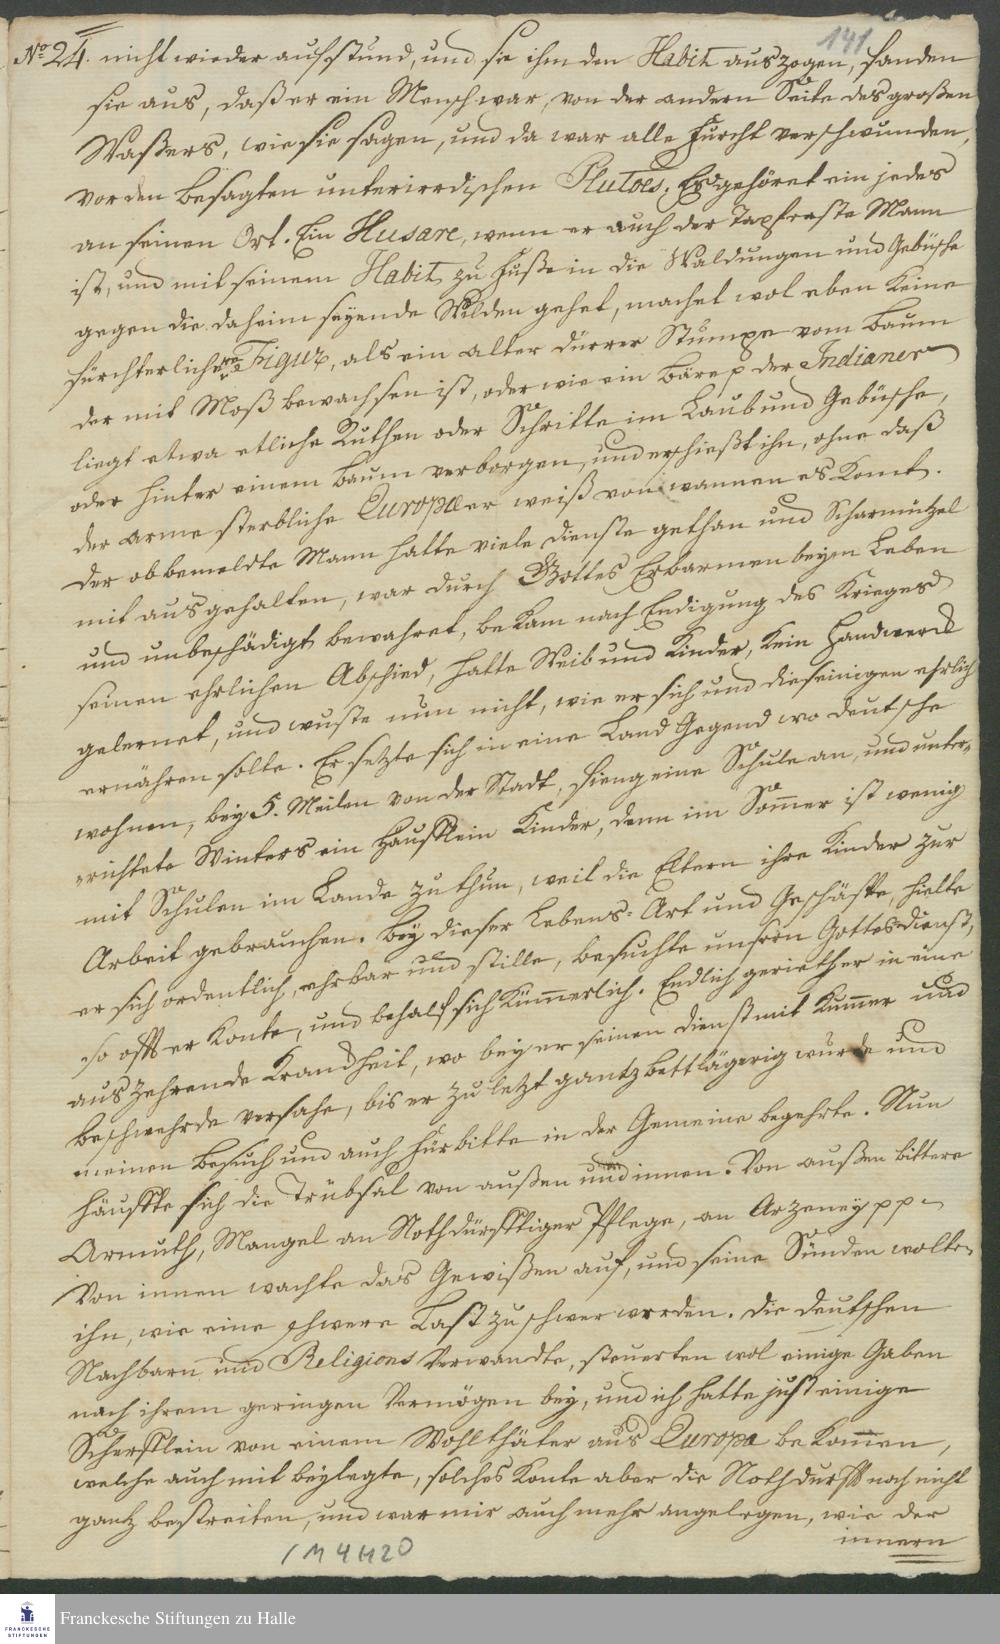 141
No 24. nicht wieder aufstund, und sie ihm den Habit auszogen, fanden
sie aus, daß er ein Mensch war, von der andern Seite des großen
Waßers, wie sie sagen, und da war alle Furcht verschwunden,
vor den besagten unterirrdischen Plutoes. Es gehöret ein jedes
an seinen Ort. Ein Husare, wenn er auch der Tapferste Mann
ist, und mit seinem Habit zu Fuße in die Waldungen und Gebüsche
gegen die daheim seyende Wilden gehet, machet wol eben keine
fürchterlichere Figur, als ein alter dürrer Stumpe vom Baum
der mit Moß bewachsen ist, oder wie ein Bäre p der Indianer
liegt etwa etliche Ruthen oder Schritte im Laub und Gebüsche,
oder hinter einem Baum verborgen, und erschießt ihn, ohne daß
der arme sterbliche Europæer weiß von wannen es komt.
Der obbemeldte Mann hatte viele Dienste gethan und Scharmützel
mit ausgehalten, war durch Gottes Erbarmen beym Leben
und unbeschädigt bewahret, bekam nach Endigung des Krieges
seinen ehrlichen Abschied, hatte Weib und Kinder, kein Handwerck
gelernet, und wuste nun nicht, wie er sich und dieseinigen ehrlich
ernähren solte. Er setzte sich in eine Land Gegend wo deutsche
wohnen, bey 5. Meilen von der Stadt, fieng eine Schule an, und unter-
richtete Winters ein Häufflein Kinder, denn im Sommer ist wenig
mit Schulen im Lande zu thun, weil die Eltern ihre Kinder zur
Arbeit gebrauchen. Bey dieser Lebens-Art und Geschäffte, hielte
er sich ordentlich, ehrbar und stille, besuchte unsern Gottesdienst,
so offt er konte, und behalf sich kümmerlich. Endlich geriethe er in eine
auszehrende Kranckheit, wo bey er seinen Dienst mit Kummer und
beschwehrde versahe, bis er zu letzt gantz bettlägerig wurde und
meinen Besuch und auch Fürbitte in der Gemeine begehrte. Nun
häuffte sich die Trübsal von außen und innen. Von außen bittere
Armuth, Mangel an Nothdürfftiger Pflege, an Arzeney pp
Von innen wachte das Gewißen auf, und seine Sünden wolten
ihn, wie eine schwere Last zu schwer werden. Die deutschen
Nachbarn und Religions Verwandte, steuerten wol einige Gaben
nach ihrem geringen Vermögen bey, und ich hatte just einige
Scherfflein von einem Wohlthäter aus Europa bekommen,
welche auch mit beylegte, solches konte aber die Nothdurfft noch nicht
gantz bestreiten, und war mir auch mehr angelegen, wie der
innern
1 M 4 H 20
Franckesche Stiftungen zu Halle
FRANCKESCHE
STIFTUNGEN